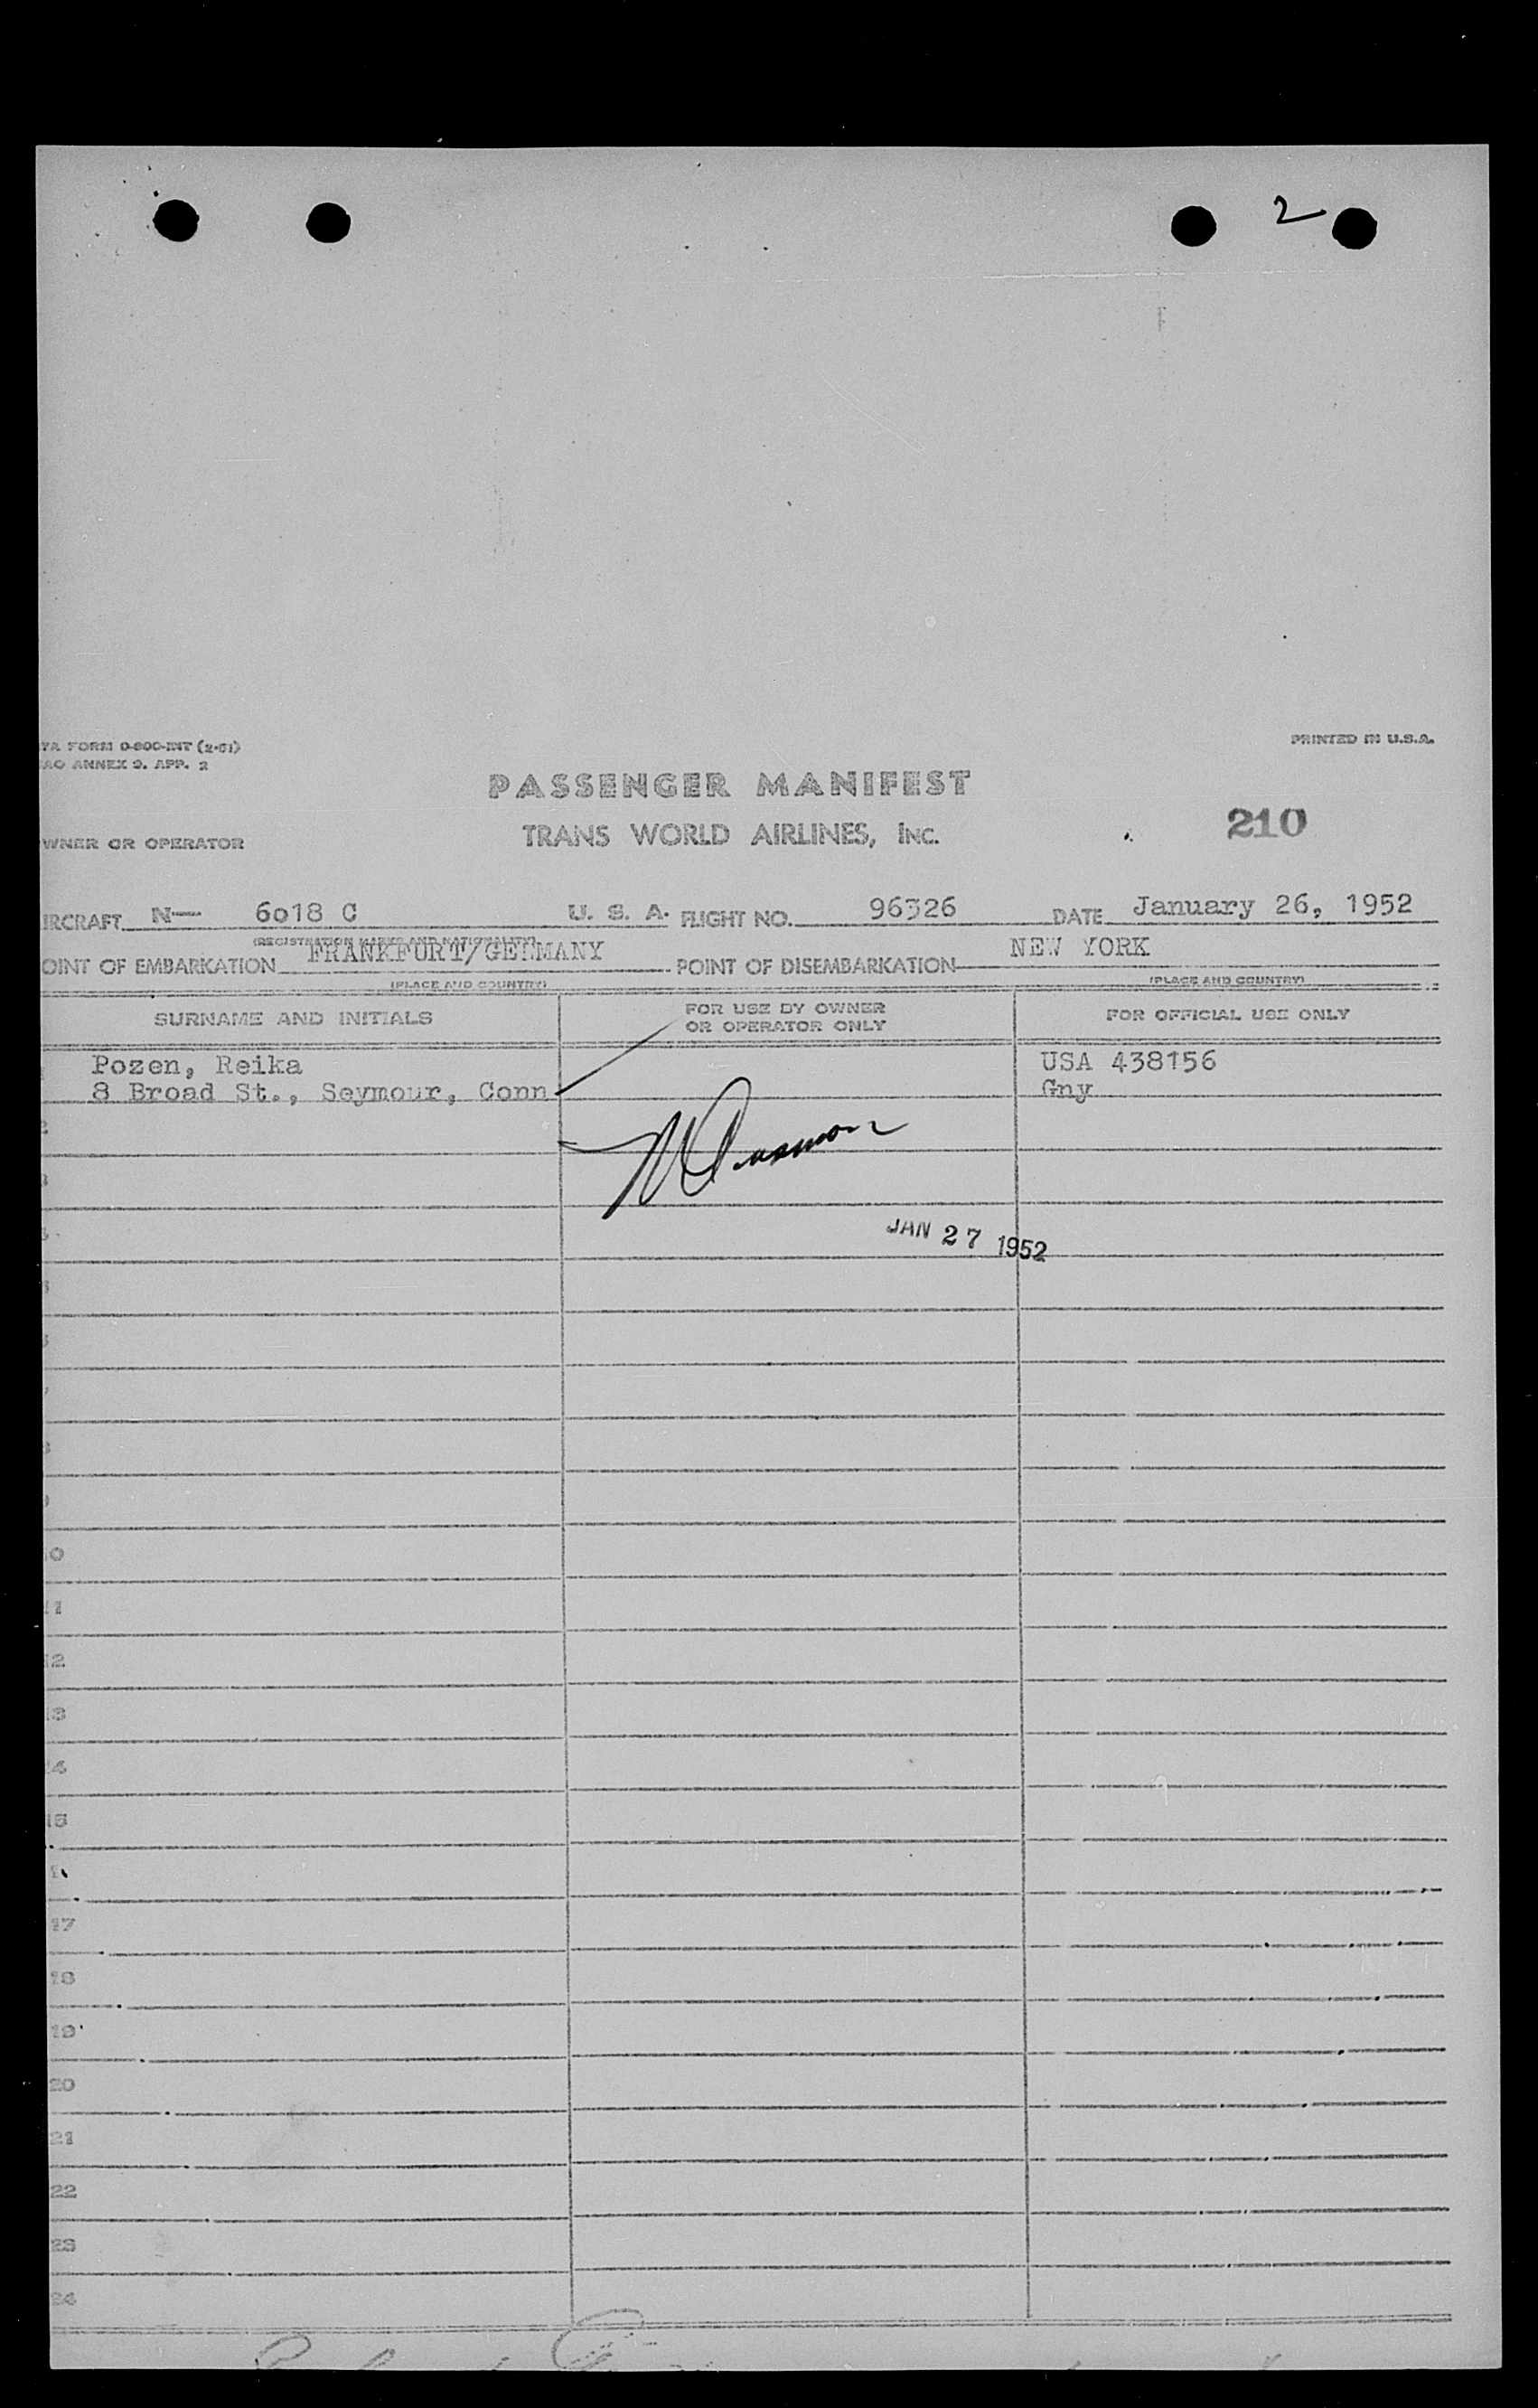 2
YA FORM 0-800-INT (2-51)
PRINTED IN U.S.A.
AO ANNEX 9. APP. 2
PASSENGER MANIFEST
TRANS WORLD AIRLINES, Inc.
210
WNER OR OPERATOR
IRCRAFT N— 6018 C U. S. A. FLIGHT NO. 96326 DATE January 26, 1952
(REGISTRATION MARKS AND NATIONALITY)
OINT OF EMBARKATION FRANKFURT/GERMANY POINT OF DISEMBARKATION NEW YORK
(PLACE AND COUNTRY) (PLACE AND COUNTRY)
SURNAME AND INITIALS FOR USE BY OWNER OR OPERATOR ONLY FOR OFFICIAL USE ONLY
Pozen, Reika USA 438156
8 Broad St., Seymour, Conn Gny
JAN 27 1952
10
11
12
13
14
15
17
18
19
20
21
22
23
24